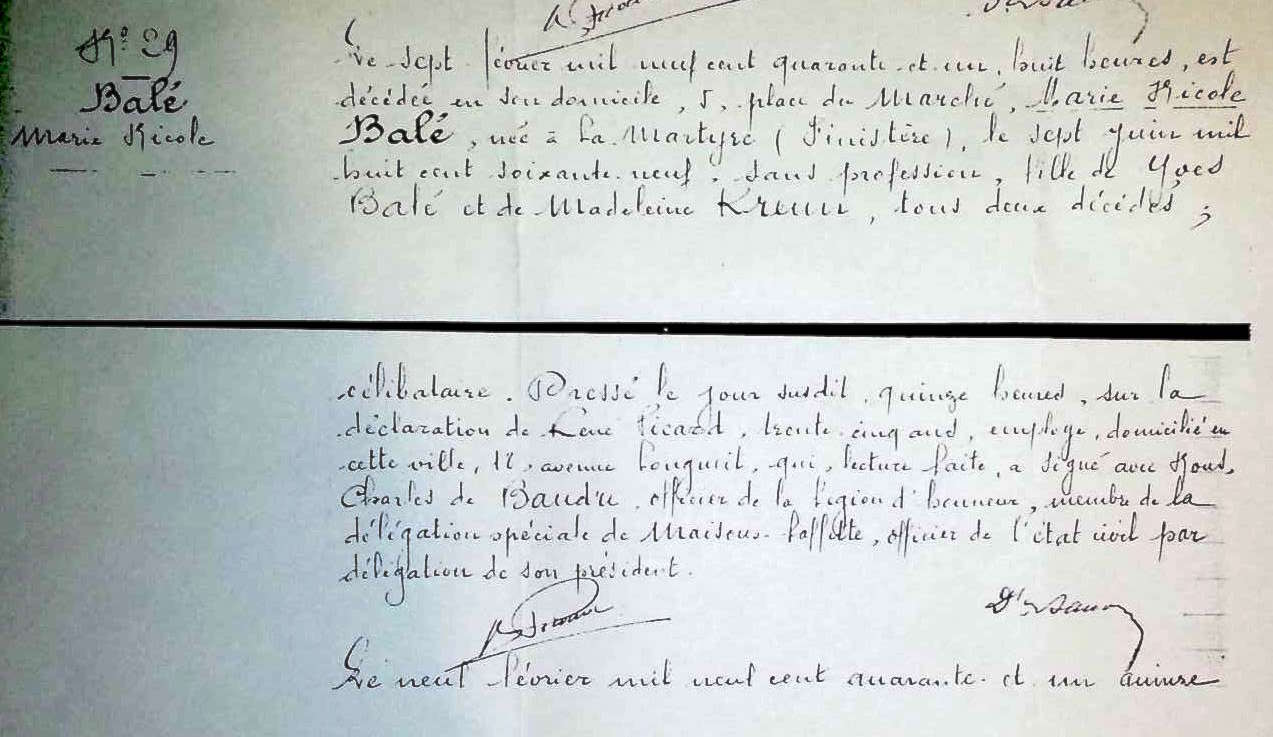 N° 29
Balé
Marie Nicole
Le sept février mil neuf cent quarante et un, huit heures, est
décédée en son domicile, 5, place du Marché, Marie Nicole
Balé, née à La Martyre (Finistère), le sept juin mil
huit cent soixante neuf, sans profession, fille de Yves
Balé et de Madeleine Kremn, tous deux décédés;
célibataire. Dressé le jour susdit, quinze heures, sur la
déclaration de René Picard, trente cinq ans, employé, domicilié en
cette ville, 12, avenue Longueil, qui, lecture faite, a signé avec Nous,
Charles de Baudru, officier de la Légion d'honneur, membre de la
délégation spéciale de Maisons-Laffitte, officier de l'état civil par
délégation de son président.
Le neuf février mil neuf cent quarante et un